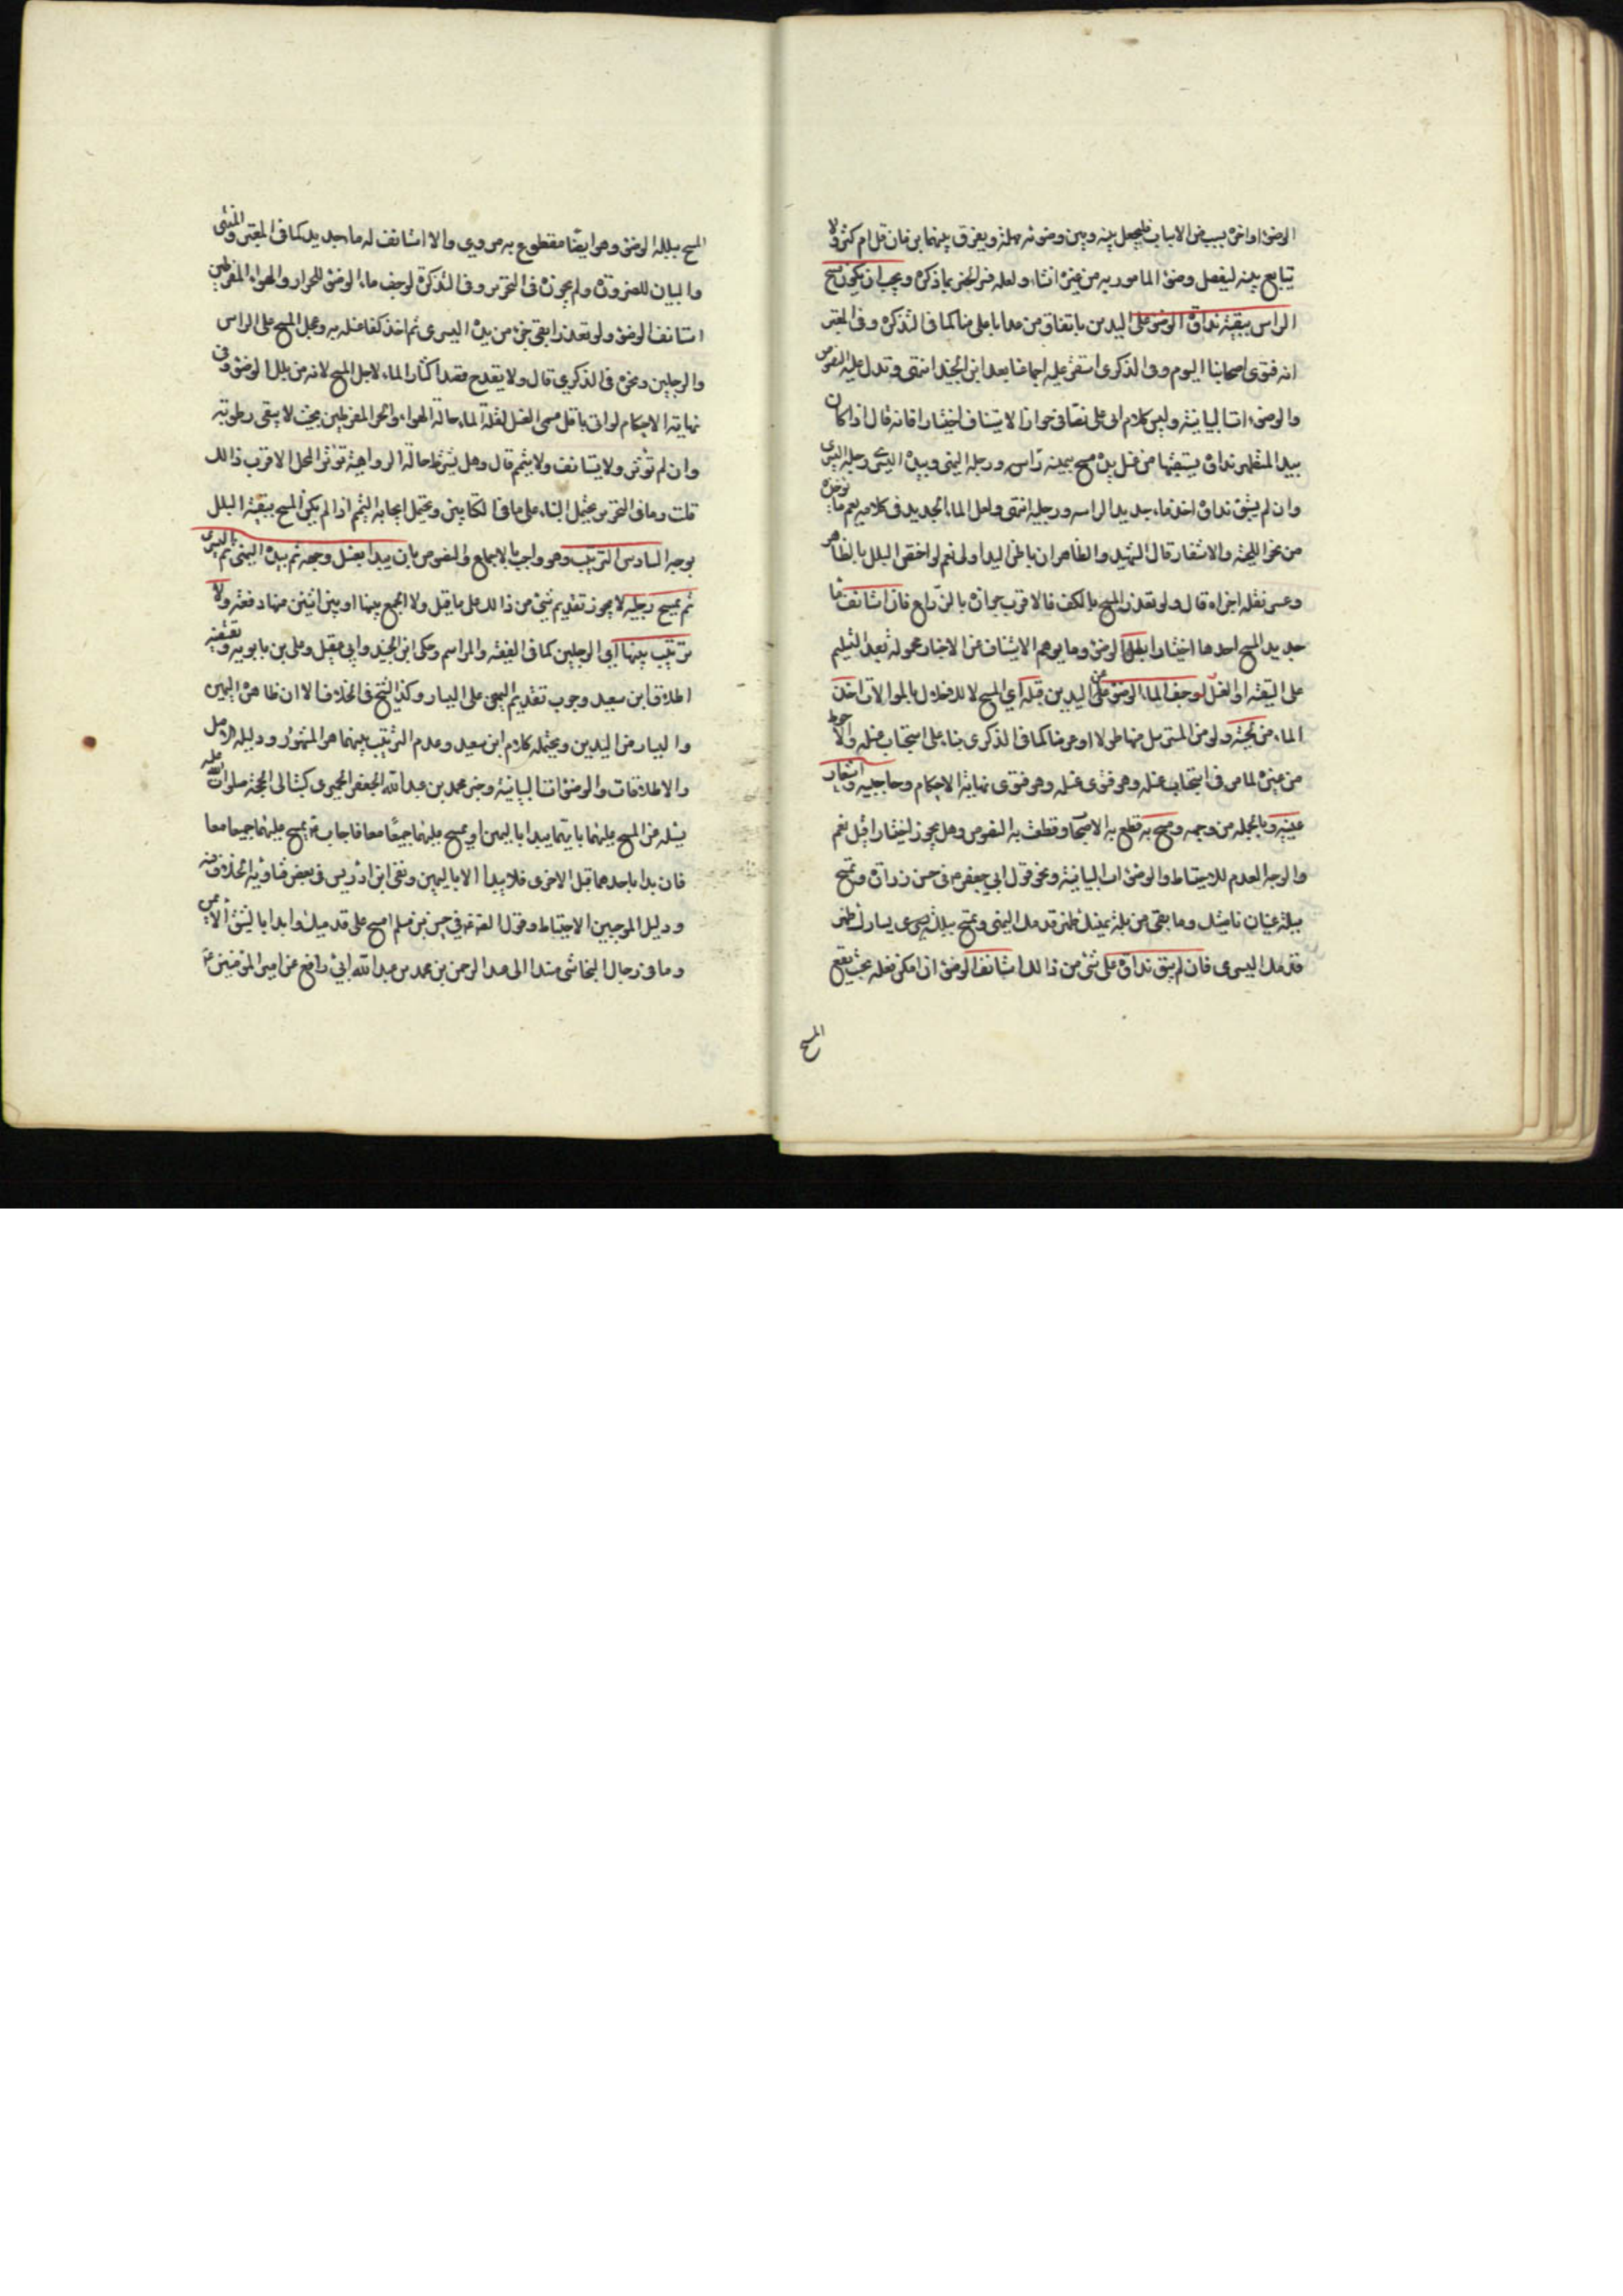 الوضوء او اخره بسبب من الاسباب فليجعل بينه وبين وضوئه مهلة ويفرق بينهما بزمان قل ام كثر ولا
يتابع بينه ليفصل وضوء المأمور به من غيره انتهى ولعله فسر الخبر بما ذكره ويجب ان يكون مسح
الراس ببقية نداوة الوضوء على اليدين باتفاق من عدا ابا علي منا كما في التذكرة وفي المعتبر
انه فتوى اصحابنا اليوم وفي الذكرى استقر عليه اجماعنا بعد ابن الجنيد انتهى وتدل عليه النصوص
والوضوءات البيانية وليس كلام ابي علي نصا في جواز الاستيناف اختيارا فانه قال اذا كان
بيد المتطهر نداوة يستبقيها من غسل يده مسح بيمينه راسه ورجله اليمنى وبيده اليسرى رجله اليسرى
وان لم يستبق نداوة اخذ ماء جديدا لراسه ورجليه انتهى ولعل الماء الجديد في كلامه يعم ما نوخذه
من نحو اللحية والاشفار قال الشهيد والظاهر ان باطن اليد اولى نعم لو اختص البلل بالظاهر
وعسر نقله اجزاه قال ولو تعذر المسح بالكف فالاقرب جوازه بالذراع فان استانف ماء
جديدا لمسح احدهما اختيارا بطل الوضوء وما يوهم الاستيناف من الاخبار محمولة بعد التسليم
على التقية او الغسل لو جف الماء الوضوء من على اليدين قبله اي المسح لا للاخلال بالموالات اخذ
الماء من لحيته ولو من المسترسل منها طولا او عرضا كما في الذكرى بناء على استحباب غسله والاحوط
من غيره لما مر في استحباب غسله وهو فتوى نهاية الاحكام وحاجبيه واشفار
عينيه وبالجملة من وجهه ومسح به قطع به الاصحاب وقطعت به النصوص وهل يجوز اختيارا قيل نعم
والوجه العدم للاحتياط والوضوءات البيانية ونحو قول ابي جعفر ع في حسن زرارة وتمسح
ببلة يمناك ناصيتك وما بقي من بلة يمينك ظهر قدمك اليمنى وتمسح ببلة يسارك ظهر
قدمك اليسرى فان لم يبق نداوة على شئ من ذالك استانف الوضوء اذا امكن فعله بحيث يقع
المسح
المسح ببلله الوضوء وهو ايضا مقطوع به مروي والا استانف له ماء جديد كما في المعتبر والمنتهى
والبيان للضرورة ولم يجوزه في التحرير وفي التذكرة لو جف ماء الوضوء للحر او الهواء المفرطين
استانف الوضوء ولو تعذر ابقى جزء من يده اليسرى ثم اخذ كفا غسله به وعجل المسح على الراس
والرجلين ونحوه في الذكرى قال ولا يقدح قصد اكثار الماء لاجل المسح لانه من بلل الوضوء وفي
نهاية الاحكام لو اتى باقل مسمى الغسل لقلة الماء حالة الهواء والحر المفرطين بحيث لا يبقى رطوبة
وان لم تؤثر ولا يستانف ولا يتيمم قال وهل يشترط حالة الرواهية تؤثر المحل الاقرب ذالك
قلت وما في التحرير يحتمل البناء على ما في الكتابين ويحتمل ايجابه التيمم اذا لم يكن المسح ببقية البلل
بوجه السادس الترتيب وهو واجب بالاجماع والنصوص بان يبدا بغسل وجهه ثم بيده اليمنى ثم باليسرى
ثم يمسح رجليه لا يجوز تقديم شئ من ذالك على ما قبل ولا الجمع بينها او بين اثنين منها دفعة ولا
ترتيب بينهما اي الرجلين كما في الغنية والمراسم وحكى ابن الجنيد وابي عقيل وعلي بن بابويه وتقتضيه
اطلاق ابن سعيد وجوب تقديم اليمنى على اليسار وكذا الشيخ في الخلاف الا ان ظاهره اليمين
واليسار من اليدين ويحتمله كلام ابن سعيد وعدم الترتيب بينهما هو المشهور ودليله الاصل
والاطلاقات والوضوءات البيانية وخبر محمد بن عبد الله بن جعفر الحميري كتب الى الحجة صلوات الله عليه
يسئله عن المسح عليهما بايهما يبدا باليمين او يمسح عليهما جميعا معا فاجاب ع يمسح عليهما جميعا معا
فان بدا باحدهما قبل الاخرى فلا يبدا الا باليمين ونفى ابن ادريس في بعض فتاويه الخلاف عنه
ودليل الموجبين الاحتياط وقول الصادق ع في حسن بن مسلم امسح على قدميك وابدا بالشق الايمن
وما في رجال النجاشي مسندا الى عبد الرحمن بن محمد بن عبد الله ابي رافع عن امير المؤمنين ع